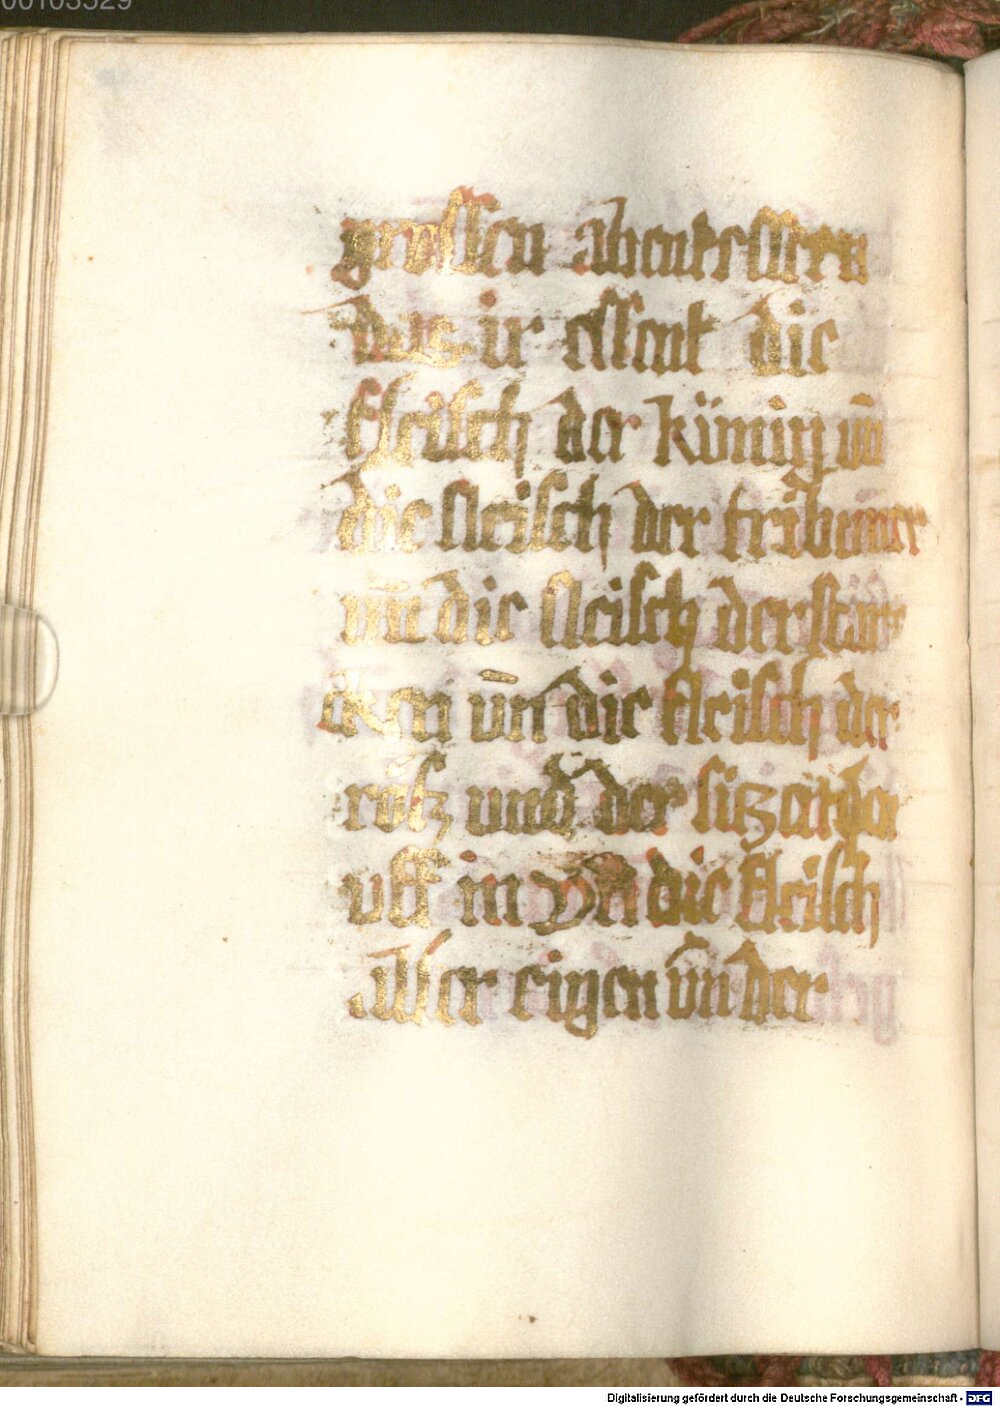 00103529
grossen abentessen
das ir essent die
fleisch der künig vn̄
die fleisch der tribuner
vn̄ die fleisch der star
cken vn̄ die fleisch der
rosz und der sitzent dar
uff in vn̄ die fleisch
aller eigen vn̄ der
Digitalisierung gefördert durch die Deutsche Forschungsgemeinschaft - DFG